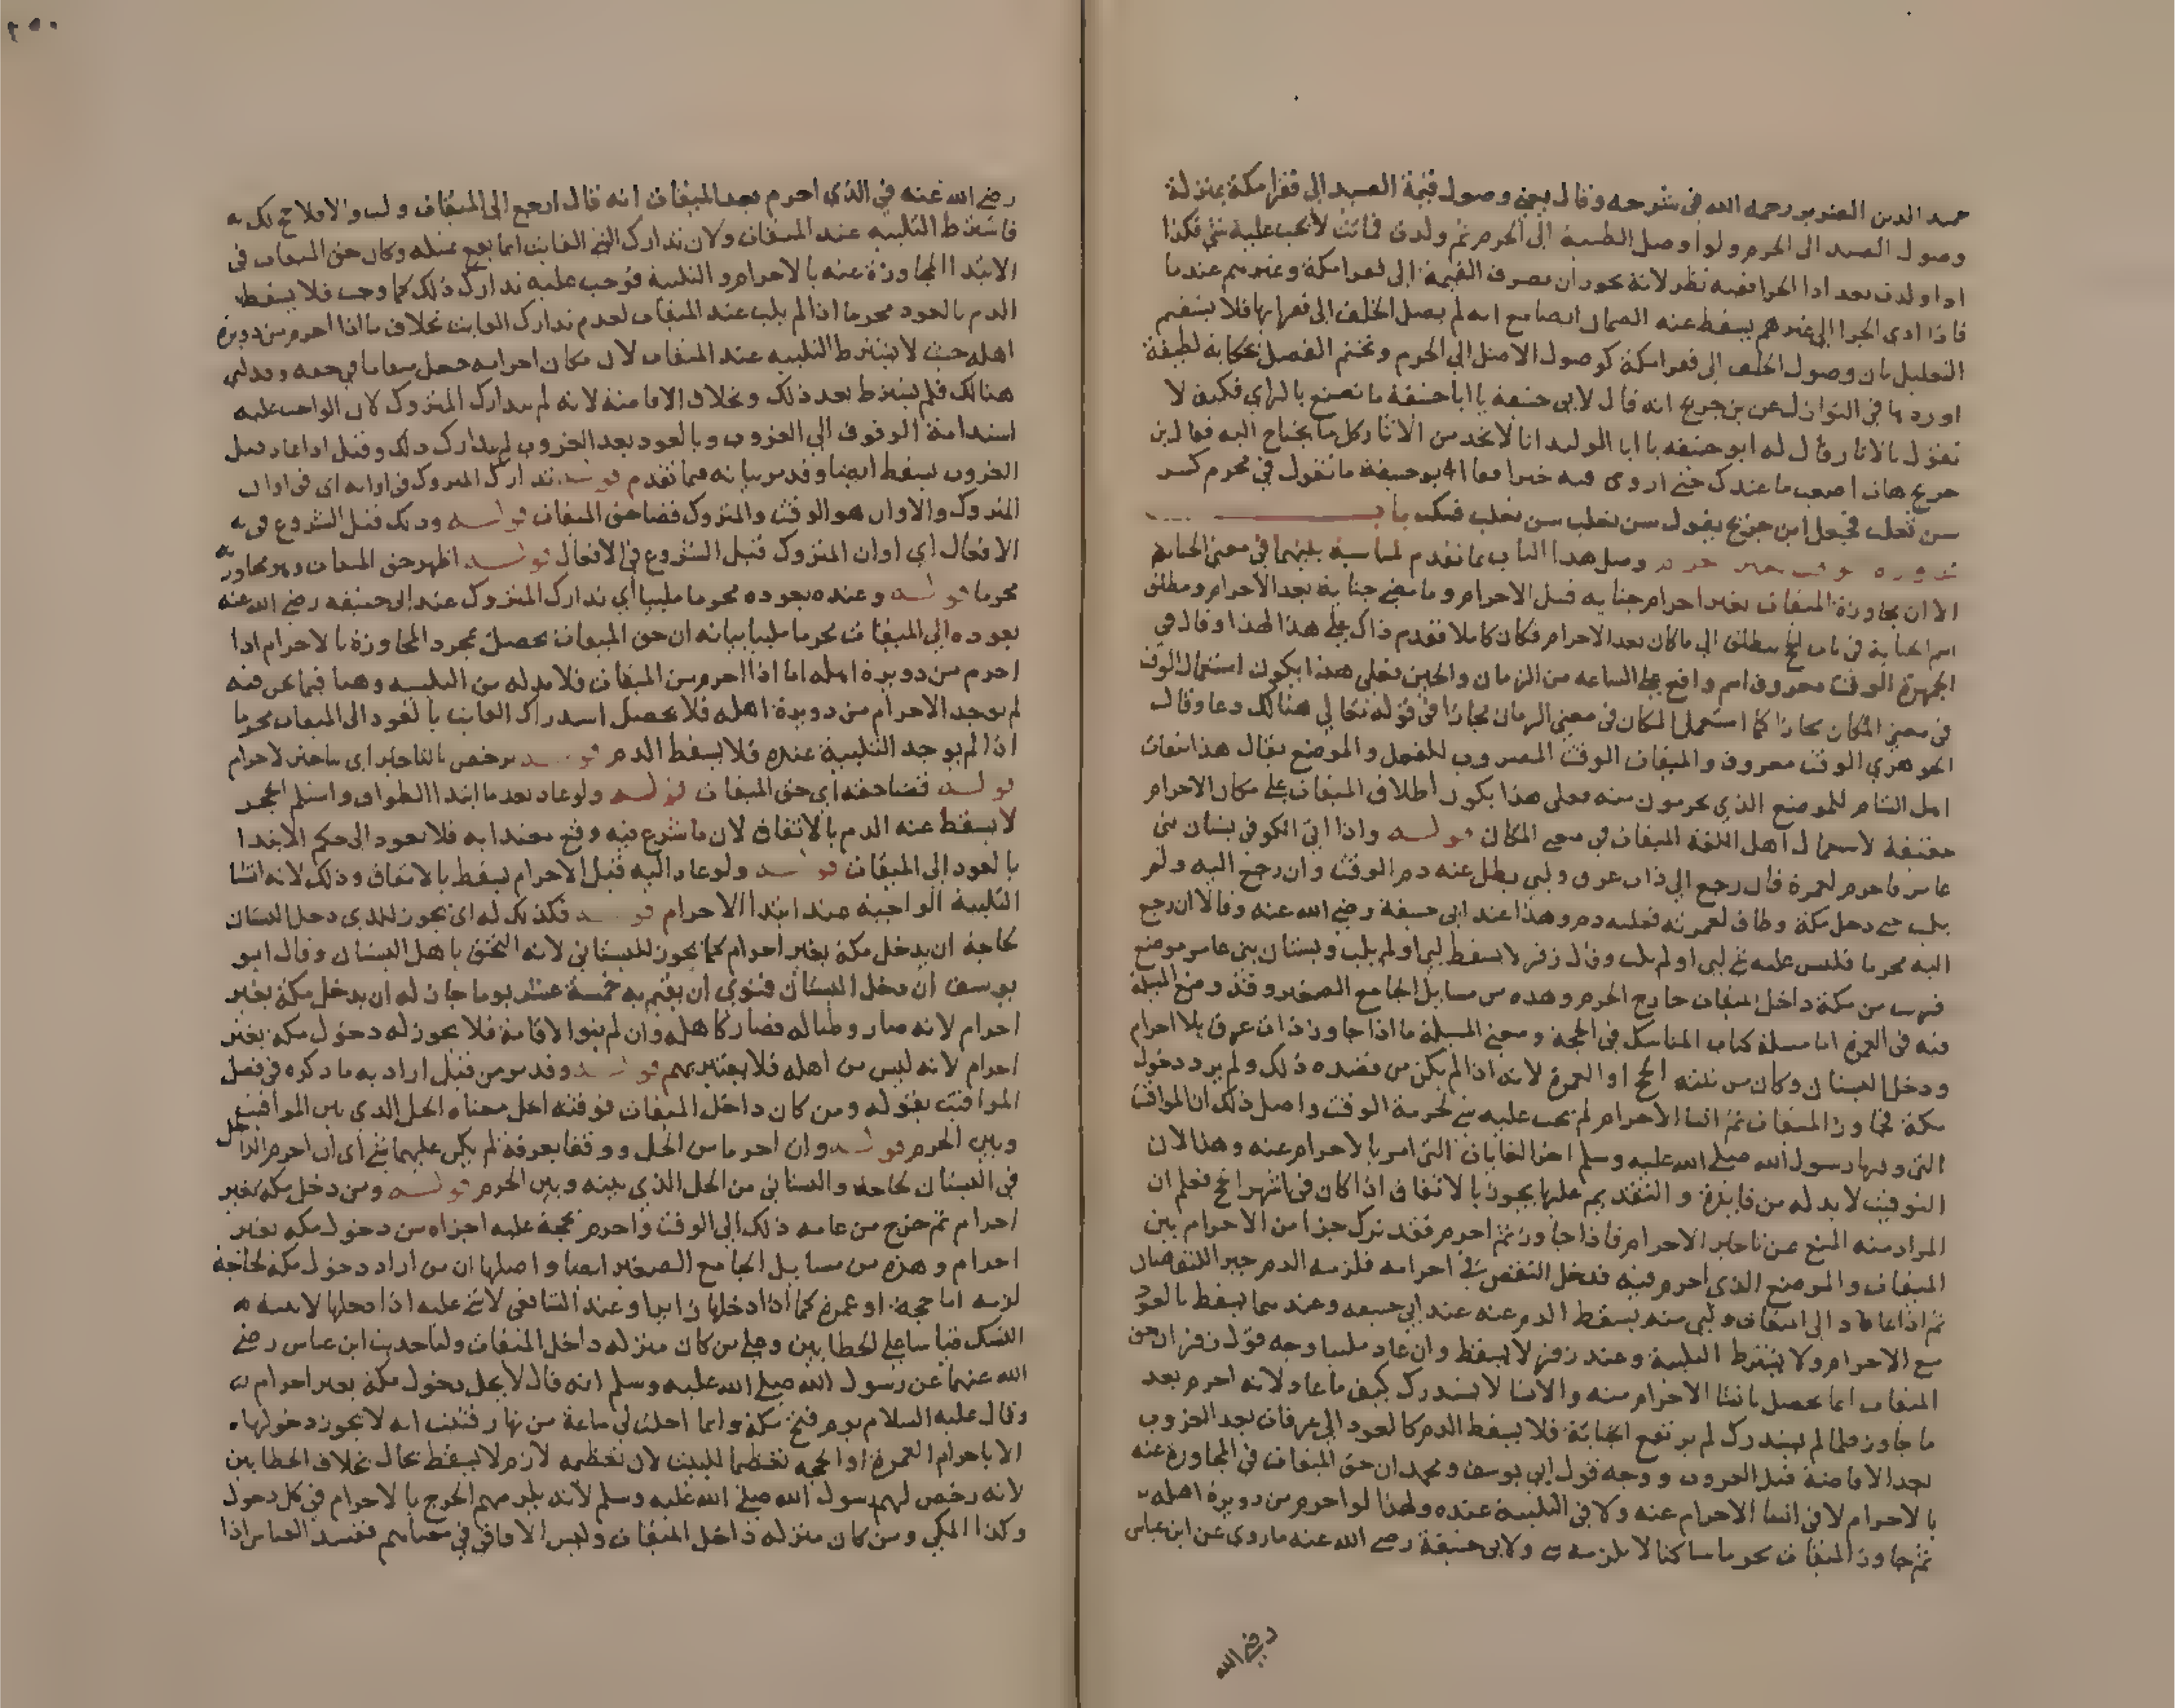 حميد الدين الضرير رحمه الله في شرحه وقال يعني وصول قيمة الصيد الى فقرا مكة بمنزلة
وصول الصيد الى الحرم ولو اوصل الظبية الى الحرم ثم ولدت فماتت لا يجب عليه شي فكذا
اذا ولدت بعد ادا الجزا ففيه نظر لانه يجوز ان يصرف القيمة الى فقرا مكة وغيرهم عندنا
فاذا ادى الجزا الى غيرهم يسقط عنه الضمان ايضا مع انه لم يصل الخلف الى فقرائها فلا يستقيم
التعليل بان وصول الخلف الى فقرا مكة كوصول الاصل الى الحرم ونختم الفصل بحكاية لطيفة
اوردها في النوازل عن بن جريج انه قال لابي حنيفة يا ابا حنيفة ما تصنع بالراي فكيف لا
تقول بالاثار وقال له ابو حنيفه يا ابا الوليد انا لا نجد من الاثار كل ما يحتاج اليه فقال بن
جريج هات اصعب ما عندك حتى اروى فيه خبرا فقال ابو حنيفة ما تقول في محرم كسر
سن ثعلب فجعل ابن جريج يقول سن ثعلب سن ثعلب فسكت باب
وصل هذا الباب بما تقدم لمناسبة بينهما في معنى الجناية
الا ان مجاوزة الميقات بغير احرام جناية قبل الاحرام وما مضى جناية بعد الاحرام ومطلق
اسم الجناية في باب الحج ينطلق الى ما كان بعد الاحرام فكان كاملا فقدم ذاك على هذا لهذا وقال في
الجمهرة الوقت معروف اسم واقع على الساعه من الزمان والحين فعلى هذا يكون استعمال الوقت
في معنى المكان مجازا كما استعمل المكان في معنى الزمان مجازا في قوله تعالى هنالك دعا وقال
الجوهري الوقت معروف والميقات الوقت المضروب للفعل والموضع يقال هذا ميقات
اهل الشام للموضع الذي يحرمون منه فعلى هذا يكون اطلاق الميقات على مكان الاحرام
حقيقة لاستعمال اهل اللغة الميقات في معنى المكان قوله واذا اتى الكوفي بستان بني
عامر فاحرم لعمرة فان رجع الى ذات عرق ولبى بطل عنه دم الوقت وان رجع اليه ولم
يلب حتى دخل مكة وطاف لعمرته فعليه دم وهذا عند ابي حنيفة رضي الله عنه وقالا ان رجع
اليه محرما فليس عليه شي لبى او لم يلب وقال زفر لا يسقط لبى او لم يلب وبستان بني عامر موضع
قريب من مكة داخل الميقات خارج الحرم وهذه من مسايل الجامع الصغير وقد وضع المسئلة
فيه في العمرة اما مسئلة كتاب المناسك في الحجة ومعنى المسئلة ما اذا جاوز ذات عرق بلا احرام
ودخل البستان وكان من نيته الحج او العمرة لانه اذا لم يكن من قصده ذلك ولم يرد دخول
مكة فجاوز الميقات ثم انشا الاحرام لم يجب عليه شي لحرمة الوقت واصل ذلك ان المواقيت
التي وقتها رسول الله صلى الله عليه وسلم اخر الغايات التي امر بالاحرام عنه وهذا لان
التوقيت لا بد له من فايدة والتقديم عليها يجوز بالاتفاق اذا كان في اشهر الحج فعلم ان
المراد منه المنع عن تاخير الاحرام فاذا جاوز ثم احرم فقد ترك جزا من الاحرام بين
الميقات والموضع الذي احرم فيه فدخل النقص في احرامه فلزمه الدم جبرا للنقصان
ثم اذا عاد الى الميقات ولبى منه يسقط الدم عنه عند ابي حنيفه وعندهما يسقط بالعود
مع الاحرام ولا يشترط التلبية وعند زفر لا يسقط وان عاد ملبيا وجه قول زفر ان حق
الميقات انما يحصل بانشا الاحرام منه والانشا لا يستدرك كيف ما عاد لانه احرم بعد
ما جاوز فلما لم يستدرك لم يرتفع الجناية فلا يسقط الدم كالعود الى عرفات بعد الغروب
بعد الافاضة قبل الغروب ووجه قول ابي يوسف ومحمد ان حق الميقات في المجاوزة عنه
بالاحرام لا في انشا الاحرام عنه ولا في التلبية عنده ولهذا لو احرم من دويرة اهله
ثم جاوز الميقات محرما ساكتا لا يلزمه شي ولابي حنيفة رضي الله عنه ما روي عن ابن عباس
رضي الله
٢٥٠
رضي الله عنه في الذي احرم بعد الميقات انه قال ارجع الى الميقات ولب والا فلا حج لك
فاشترط التلبيه عند الميقات ولان تدارك الشي الفايت انما يقع بمثله وكان حق الميقات في
الابتدا المجاوزة عنه بالاحرام والتلبية فوجب عليه تدارك ذلك كما وجب فلا يسقط
الدم بالعود محرما اذا لم يلب عند الميقات لعدم تدارك الفايت بخلاف ما اذا احرم من دويرة
اهله حيث لا يشترط التلبيه عند الميقات لان مكان احرامه جعل ميقاتا في حقه وقد لبى
هنالك فلم يشترط بعد ذلك وبخلاف الافاضة لانه لم يتدارك المتروك لان الواجب عليه
استدامة الوقوف الى الغروب وبالعود بعد الغروب لم يتدارك ذلك وقيل اذا عاد قبل
الغروب يسقط ايضا وقد مر بيانه فيما تقدم قوله تدارك المتروك في اوانه اى في اوان
المتروك والاوان هو الوقت والمتروك قضا حق الميقات قوله وذلك قبل الشروع في
الافعال اي اوان المتروك قبل الشروع في الافعال قوله اظهر حق الميقات
محرما قوله وعنده بعوده محرما ملبيا أي تدارك المتروك عند ابي حنيفه رضي الله عنه
بعوده الى الميقات محرما ملبيا بيانه ان حق الميقات يحصل بمجرد المجاوزة بالاحرام اذا
احرم من دويرة اهله اما اذا احرم من الميقات فلا بد له من التلبيه وهنا فيما نحن فيه
لم يوجد الاحرام من دويرة اهله فلا يحصل استدراك الفايت بالعود الى الميقات محرما
اذا لم يوجد التلبية عنده فلا يسقط الدم قوله يرخص بالتاخير اي بتاخير الاحرام
قوله قضا حقه اي حق الميقات قوله ولو عاد بعد ما ابتدا الطواف واستلم الحجر
لا يسقط عنه الدم بالاتفاق لان ما شرع فيه وقع معتدا به فلا يعود الى حكم الابتدا
بالعود الى الميقات قوله ولو عاد اليه قبل الاحرام يسقط بالاتفاق وذلك لانه انشا
التلبية الواجبة عند ابتدا الاحرام قوله فكذلك له اى يجوز للذي دخل البستان
لحاجة ان يدخل مكة بغير احرام كما يجوز للبستاني لانه التحق باهل البستان وقال ابو
يوسف ان دخل البستان فنوى ان يقيم به خمسة عشر يوما جاز له ان يدخل مكة بغير
احرام لانه صار وطنا له فصار كاهله وان لم ينو الاقامة فلا يجوز له دخول مكة بغير
احرام لانه ليس من اهله فلا يعتبر بهم قوله وقد مر من قبل اراد به ما ذكره في فصل
المواقيت بقوله ومن كان داخل الميقات فوقته الحل معناه الحل الذي بين المواقيت
وبين الحرم قوله وان احرما من الحل ووقفا بعرفة لم يكن عليهما شي أى ان احرم الداخل
في البستان لحاجة والبستاني من الحل الذي بينه وبين الحرم قوله ومن دخل مكة بغير
احرام ثم خرج من عامه ذلك الى الوقت واحرم بحجة عليه اجزاه من دخول مكه بغير
احرام وهذه من مسايل الجامع الصغير ايضا واصلها ان من اراد دخول مكة لحاجة
لزمه اما حجة او عمرة كما اذا دخلها زايرا وعند الشافعي لا شي عليه اذا دخلها لا بنية
النسك قياسا على الحطابين وعلى من كان منزله داخل الميقات ولنا حديث ابن عباس رضي
الله عنهما عن رسول الله صلى الله عليه وسلم انه قال لا يحل دخول مكة بغير احرام
وقال عليه السلام يوم فتح مكة وانما احلت لي ساعة من نهار فثبت انه لا يجوز دخولها
الا باحرام العمرة او الحجه تعظيما للبيت لان تعظيمه لازم لا يسقط بحال بخلاف الحطابين
لانه رخص لهم رسول الله صلى الله عليه وسلم لانه يلزمهم الحرج بالاحرام في كل دخول
وكذا المكي ومن كان منزله داخل الميقات وليس الافاقي في معناهم ففسد القياس اذا